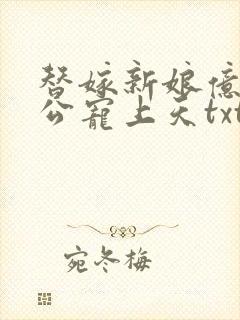 替嫁新娘亿
公宠上天txt
宛冬梅